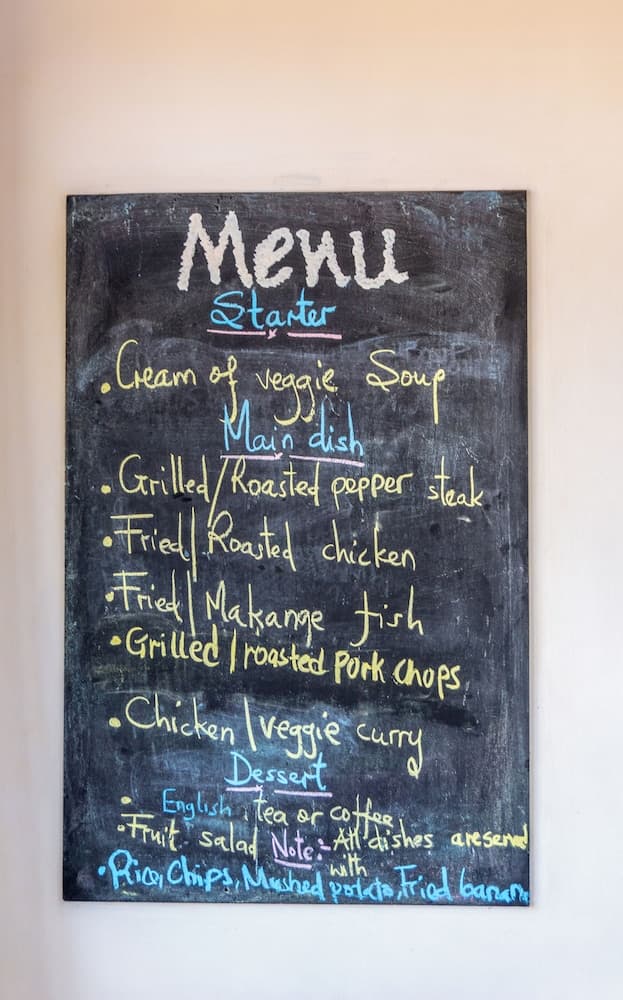 Menu
Starter
• Cream of veggie Soup
Main dish
• Grilled/Roasted pepper steak
• Fried/Roasted chicken
• Fried/Makange fish
• Grilled/roasted Pork Chops
• Chicken/veggie curry
Dessert
• English tea or coffee
• Fruit salad Note:- All dishes are served
with
• Rice, Chips, Mashed potato, Fried banana